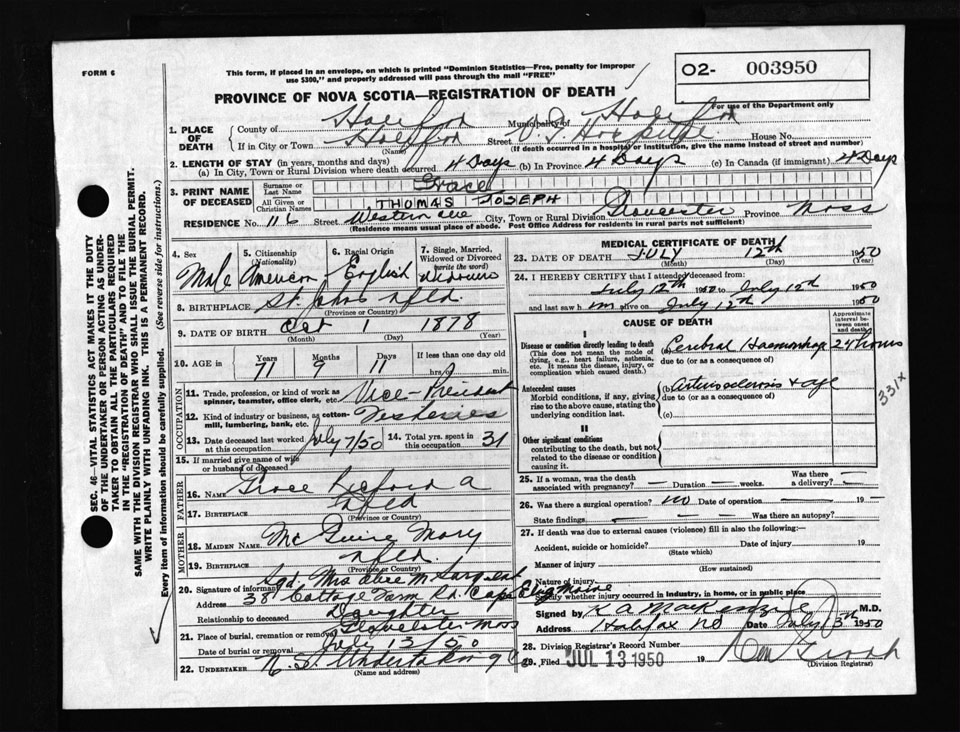 FORM 6
This form, if placed in an envelope, on which is printed "Dominion Statistics—Free, penalty for improper
use $300," and properly addressed will pass through the mail "FREE"
O2- 003950
For use of the Department only
PROVINCE OF NOVA SCOTIA—REGISTRATION OF DEATH
1. PLACE OF DEATH
County of Halifax Municipality of Halifax
If in City or Town Halifax Street V. G. Hospital House No.
(Name) (If death occurred in a hospital or institution, give the name instead of street and number)
2. LENGTH OF STAY (in years, months and days)
(a) In City, Town or Rural Division where death occurred 4 Days (b) In Province 4 Days (c) In Canada (if immigrant) 4 Days
3. PRINT NAME OF DECEASED
Surname or Last Name Grace
All Given or Christian Names THOMAS JOSEPH
RESIDENCE No. 116 Street Western Ave City, Town or Rural Division Gloucester Province Mass
(Residence means usual place of abode. Post Office Address for rural parts not sufficient)
4. Sex Male
5. Citizenship (Nationality) American
6. Racial Origin English
7. Single, Married, Widowed or Divorced (write the word) Widower
8. BIRTHPLACE St. Johns Nfld.
(Province or Country)
9. DATE OF BIRTH Oct 1 1878
(Month) (Day) (Year)
10. AGE in 71 Years 9 Months 11 Days If less than one day old hrs. min.
OCCUPATION
11. Trade, profession, or kind of work as spinner, teamster, office clerk, etc. Vice-President
12. Kind of industry or business, as cotton-mill, lumbering, bank, etc. Fisheries
13. Date deceased last worked at this occupation July 7/50
14. Total yrs. spent in this occupation 31
15. If married give name of wife or husband of deceased
FATHER
16. NAME Grace A
17. BIRTHPLACE Nfld
(Province or Country)
MOTHER
18. MAIDEN NAME Mc Guire Mary
19. BIRTHPLACE Nfld.
(Province or Country)
20. Signature of informant Sgd. Mrs M. Sargent
Address 38 Cottage Farm Rd. Cape Eliz Maine
Relationship to deceased Daughter
21. Place of burial, cremation or removal Gloucester Mass
Date of burial or removal July 13/50
22. UNDERTAKER N. S. Undertaking Co
(Name and address)
MEDICAL CERTIFICATE OF DEATH
23. DATE OF DEATH JULY 12th 1950
(Month) (Day) (Year)
24. I HEREBY CERTIFY that I attended deceased from:
July 12th 1950 to July 1950
and last saw him alive on July 1950
CAUSE OF DEATH
Approximate interval between onset and death
I
Disease or condition directly leading to death
(This does not mean the mode of dying, e.g., heart failure, asthenia, etc. It means the disease, injury, or complication which caused death.)
(a) Cerebral Haemorrhage 24 hours
due to (or as a consequence of)
Antecedent causes
Morbid conditions, if any, giving rise to the above cause, stating the underlying condition last.
(b) Arteriosclerosis + age
due to (or as a consequence of)
(c)
331x
II
Other significant conditions
contributing to the death, but not related to the disease or condition causing it.
25. If a woman, was the death associated with pregnancy? — Duration — weeks. Was there a delivery? —
26. Was there a surgical operation? no Date of operation — 19 —
State findings — Was there an autopsy? —
27. If death was due to external causes (violence) fill in also the following:—
Accident, suicide or homicide? Date of injury 19
(State which)
Manner of injury
(How sustained)
Nature of injury
Specify whether injury occurred in Industry, in home, or in public place
Signed by K A MacKenzie M.D.
Address Halifax NS Date July 13th 1950
28. Division Registrar's Record Number
29. Filed JUL 13 1950 19
(Division Registrar)
SEC. 46—VITAL STATISTICS ACT MAKES IT THE DUTY
OF THE UNDERTAKER OR PERSON ACTING AS UNDER-
TAKER TO OBTAIN ALL THE PARTICULARS REQUIRED
IN THE "REGISTRATION OF DEATH" AND TO FILE THE
SAME WITH THE DIVISION REGISTRAR WHO SHALL ISSUE THE BURIAL PERMIT.
WRITE PLAINLY WITH UNFADING INK. THIS IS A PERMANENT RECORD.
Every item of information should be carefully supplied. (See reverse side for instructions.)